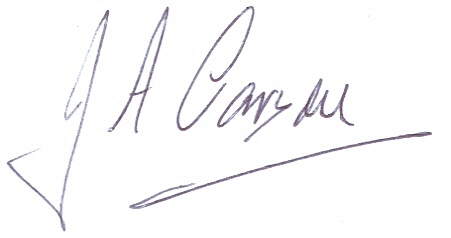 J A Carson